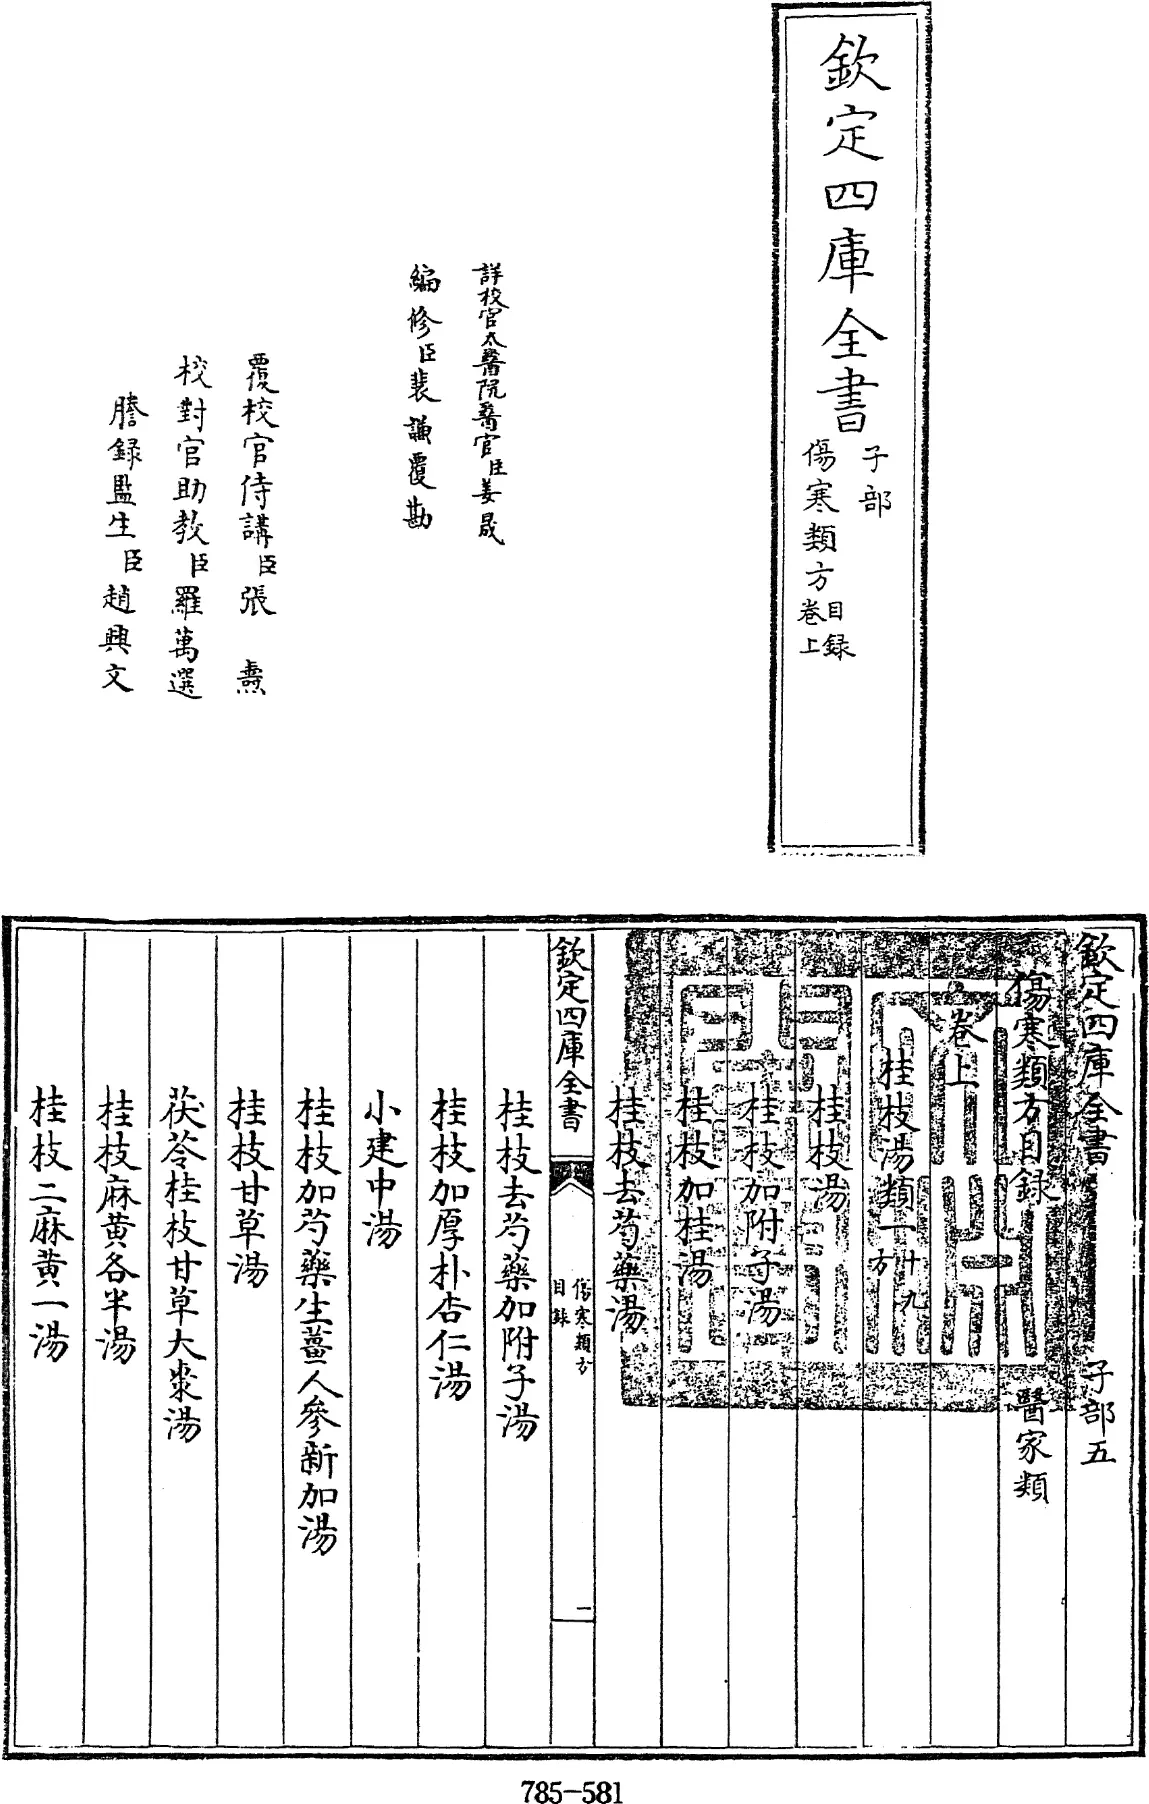 欽定四庫全書
子部
傷寒類方
目録
卷上
詳校官太醫院醫官臣姜晟
編修臣裴謙覆勘
覆校官侍講臣張燾
校對官助教臣羅萬選
謄錄監生臣趙興文
欽定四庫全書 子部五
傷寒類方目録 醫家類
卷上
桂枝湯類一十九方
桂枝湯
桂枝加附子湯
桂枝加桂湯
桂枝去芍藥湯
欽定四庫全書
傷寒類方
目録
一
桂枝去芍藥加附子湯
桂枝加厚朴杏仁湯
小建中湯
桂枝加芍藥生薑人參新加湯
桂枝甘草湯
茯苓桂枝甘草大棗湯
桂枝麻黄各半湯
桂枝二麻黄一湯
785-581